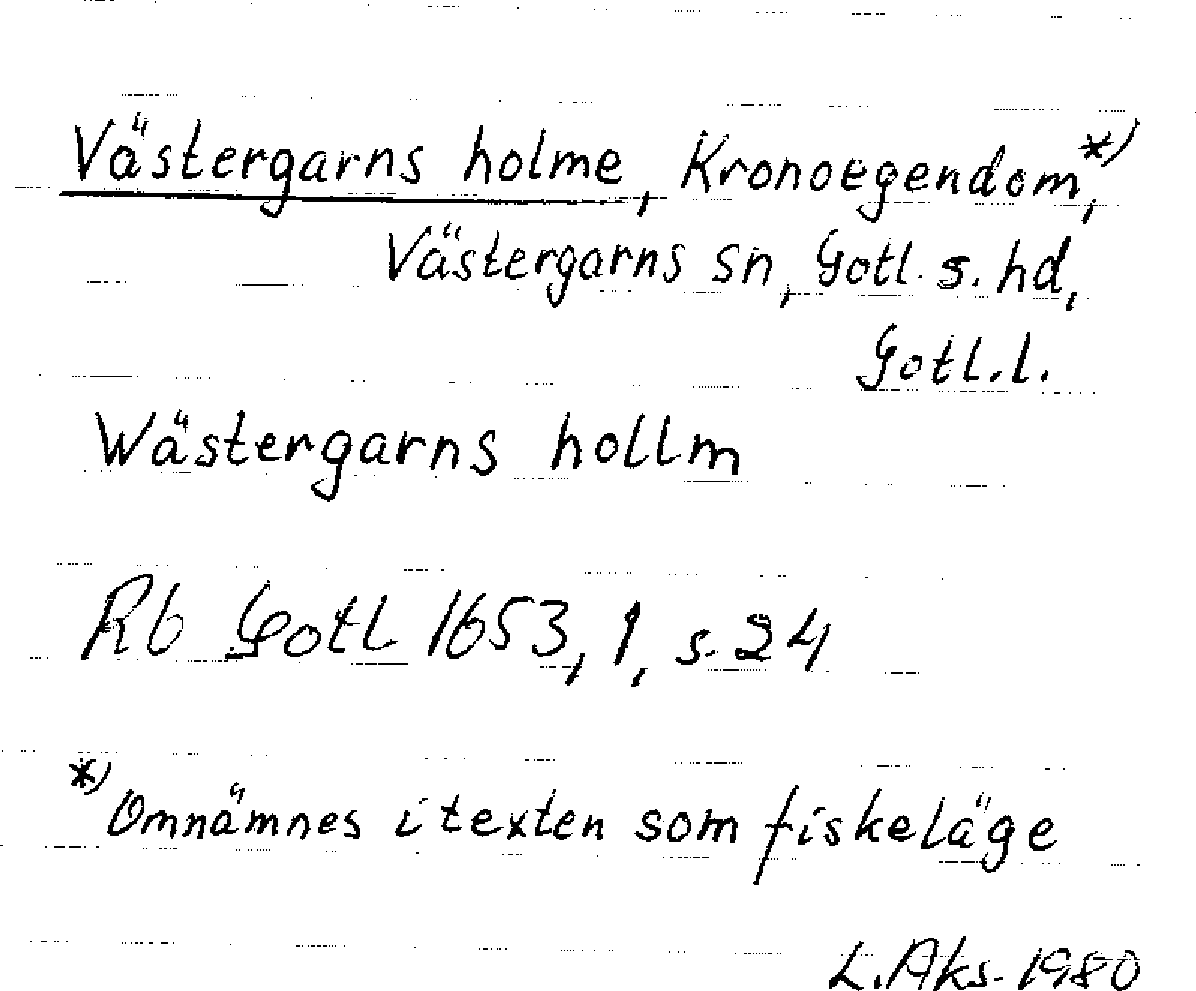 Västergarns holme, Kronoegendom,*)
Västergarns sn, Gotl. s. hd,
Gotl. l.
Wästergarns hollm
Rb Gotl 1653, 1, s. 24
*) Omnämnes i texten som fiskeläge
L. Aks. 1980